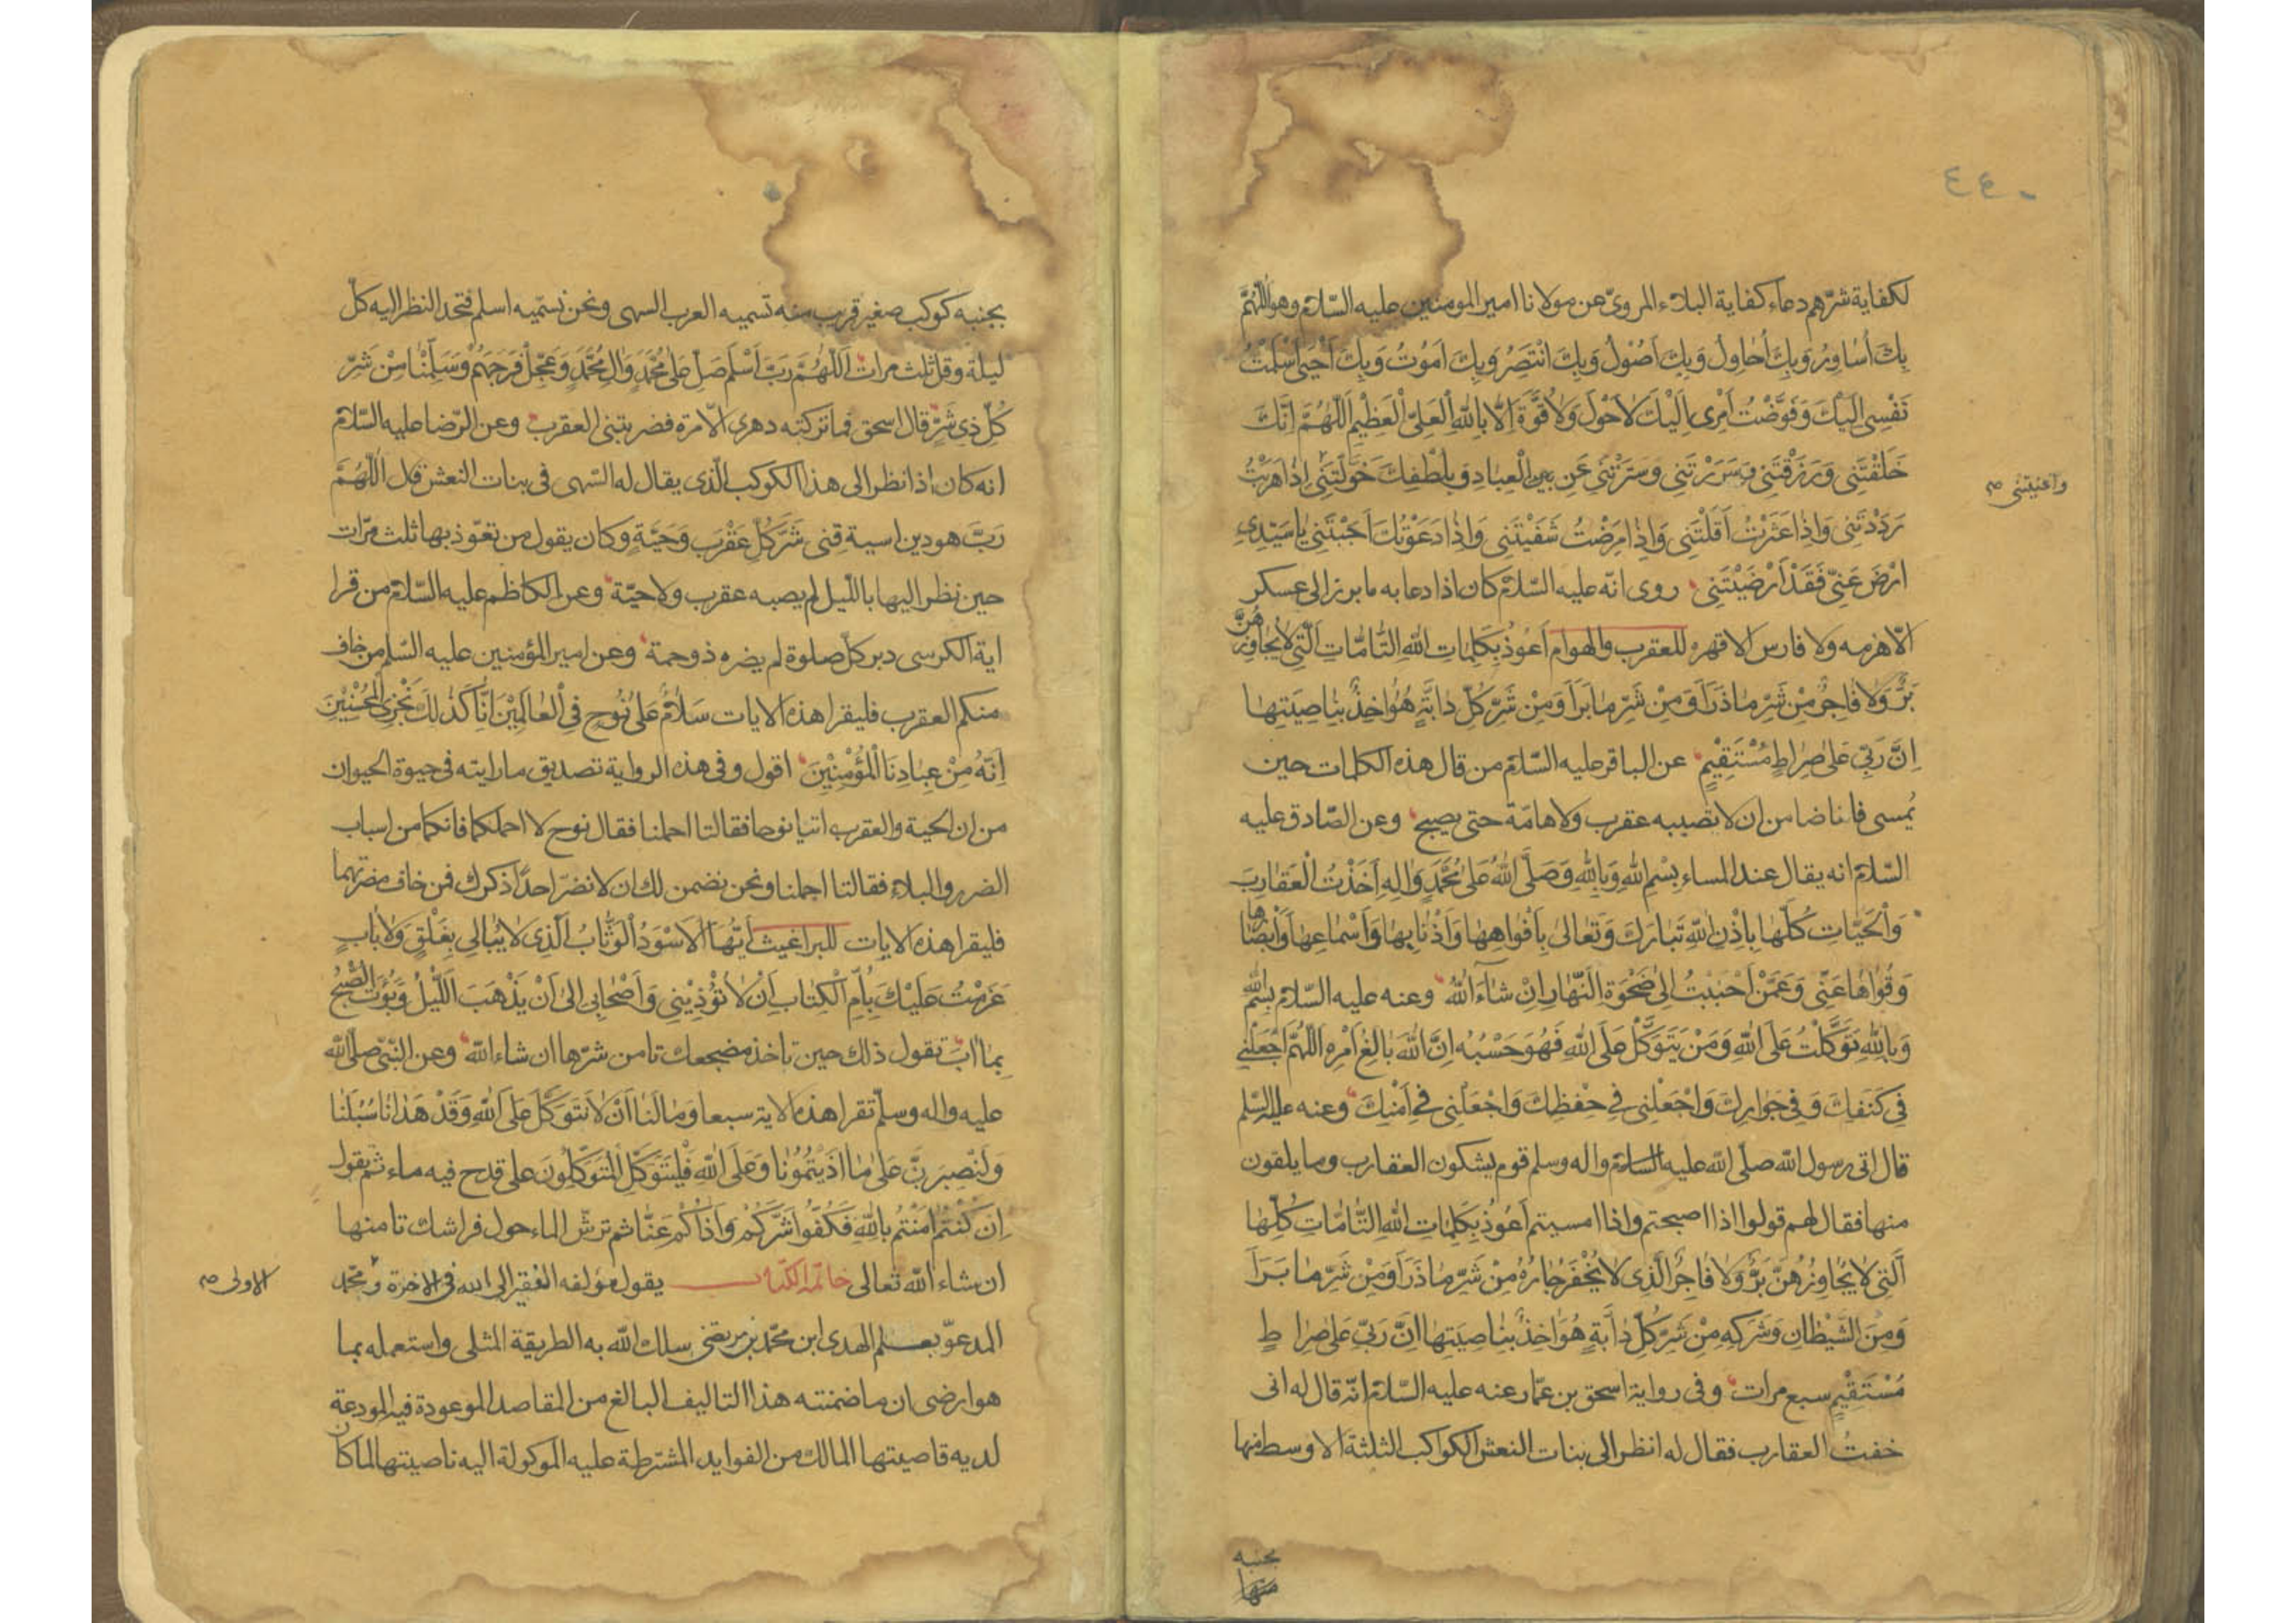 ٤٤٠
لكفاية شرّهم دعاء كفاية البلاء المرويّ عن مولانا امير المومنين عليه السّلام وهو اللّٰهُمَّ
بِكَ أُسَاوِرُ وَبِكَ أُحَاوِلُ وَبِكَ اَصُوْلُ وَبِكَ انْتَصِرُ وَبِكَ اَمُوْتُ وَبِكَ اَحْيٰى اَسْلَمْتُ
نَفْسِى اِلَيْكَ وَفَوَّضْتُ اَمْرِى اِلَيْكَ لاٰحَوْلَ وَلاٰقُوَّةَ اِلاّٰ بِاللّٰهِ الْعَلِىِّ الْعَظِيْمِ اَللّٰهُمَّ اِنَّكَ
خَلَقْتَنِى وَرَزَقْتَنِى وَسَرَرْتَنِى وَسَتَرْتَنِى عَنْ بَيْنِ الْعِبٰادِ وَبِلُطْفِكَ خَوَّلْتَنِى اِذٰا هَرَبْتُ
واغنيتنى صح
رَدَدْتَنِى وَاِذٰا عَثَرْتُ اَقَلْتَنِى وَاِذٰا مَرِضْتُ شَفَيْتَنِى وَاِذٰا دَعَوْتُكَ اَجَبْتَنِى يٰا سَيِّدِى
ارْضَ عَنِّى فَقَدْ اَرْضَيْتَنِى روى انّه عليه السّلام كان اذا دعا به ما برز الى عسكر
الّا هزمه ولا فارس الا قهره للعقرب والهوام اَعُوْذُ بِكَلِمٰاتِ اللّٰهِ التّٰامّٰاتِ الَّتِى لاٰيُجٰاوِزُهُنَّ
بَرٌّ وَلاٰ فٰاجِرٌ مِنْ شَرِّ مٰا ذَرَأَ وَمِنْ شَرِّ مٰا بَرَأَ وَمِنْ شَرِّ كُلِّ دٰابَّةٍ هُوَ اٰخِذٌ بِنٰاصِيَتِهٰا
اِنَّ رَبِّى عَلىٰ صِرٰاطٍ مُسْتَقِيْمٍ عن الباقر عليه السّلام من قال هذه الكلمات حين
يُمسى فانا ضامن ان لا تصيبه عقرب ولا هامّة حتى يصبح وعن الصّادق عليه
السّلام انه يقال عند المساء بِسْمِ اللّٰهِ وَبِاللّٰهِ وَصَلَّى اللّٰهُ عَلىٰ مُحَمَّدٍ وَاٰلِهِ اَخَذْتُ الْعَقٰارِبَ
وَالْحَيّٰاتِ كُلَّهٰا بِاِذْنِ اللّٰهِ تَبٰارَكَ وَتَعٰالىٰ بِاَفْوٰاهِهٰا وَاَذْنٰابِهٰا وَاَسْمٰاعِهٰا وَاَبْصٰارِهٰا
وَقُوٰاهٰا عَنِّى وَعَمَّنْ اَحْبَبْتُ اِلىٰ ضَحْوَةِ النَّهٰارِ اِنْ شٰاءَ اللّٰهُ وعنه عليه السّلام بِسْمِ اللّٰهِ
وَبِاللّٰهِ تَوَكَّلْتُ عَلَى اللّٰهِ وَمَنْ يَتَوَكَّلْ عَلَى اللّٰهِ فَهُوَ حَسْبُهُ اِنَّ اللّٰهَ بٰالِغُ اَمْرِهِ اللّٰهُمَّ اجْعَلْنِى
فِى كَنَفِكَ وَفِى جَوٰارِكَ وَاجْعَلْنِى فِى حِفْظِكَ وَاجْعَلْنِى فِى اَمْنِكَ وعنه عليه السّلم
قال اتى رسول اللّٰه صلّى اللّٰه عليه السلام واله وسلم قوم يشكون العقارب وما يلقون
منها فقال لهم قولوا اذا اصبحتم واذا امسيتم اَعُوْذُ بِكَلِمٰاتِ اللّٰهِ التّٰامّٰاتِ كُلِّهٰا
اَلَّتِى لاٰيُجٰاوِزُهُنَّ بَرٌّ وَلاٰ فٰاجِرٌ الَّذِى لاٰيُخْفَرُ جٰارُهُ مِنْ شَرِّ مٰا ذَرَأَ وَمِنْ شَرِّ مٰا بَرَأَ
وَمِنَ الشَّيْطٰانِ وَشَرَكِهِ مِنْ شَرِّ كُلِّ دٰابَّةٍ هُوَ اٰخِذٌ بِنٰاصِيَتِهٰا اِنَّ رَبِّى عَلىٰ صِرٰاطٍ
مُسْتَقِيْمٍ سبع مرات وفى رواية اسحق بن عمّار عنه عليه السّلام انّه قال له انى
خفتُ العقارب فقال له انظر الى بنات النعش الكواكب الثلثة الاوسط منها
بجنبه
منها
بجنبه كوكب صغير قريب منه تسميه العرب السهى ونحن نسّميه اسلم فتحد النظر اليه كلّ
ليلة وقل ثلث مرات اَللّٰهُمَّ رَبَّ اَسْلَمَ صَلِّ عَلىٰ مُحَمَّدٍ وَاٰلِ مُحَمَّدٍ وَعَجِّلْ فَرَجَهُمْ وَسَلِّمْنٰا مِنْ شَرِّ
كُلِّ ذِى شَرٍّ قال اسحق فما تركته دهرى الّا مرة فضربتنى العقرب وعن الرّضا عليه السّلام
انه كان اذا نظر الى هذا الكوكب الّذى يقال له السّهى فى بنات النعش قال اَللّٰهُمَّ
رَبَّ هود بن اسية قِنى شَرَّ كُلِّ عَقْرَبٍ وَحَيَّةٍ وكان يقول من تعوّذ بها ثلث مرّات
حين نظر اليها بالليل لم يصبه عقرب ولا حيّة وعن الكاظم عليه السّلام من قرا
اية الكرسى دبر كلّ صلوة لم يضره ذو حمة وعن امير المؤمنين عليه السّلم من خاف
منكم العقرب فليقرا هذه الايات سَلاٰمٌ عَلىٰ نُوْحٍ فِى الْعٰالَمِيْنَ اِنّٰا كَذٰلِكَ نَجْزِى الْمُحْسِنِيْنَ
اِنَّهُ مِنْ عِبٰادِنَا الْمُؤْمِنِيْنَ اقول وفى هذه الرواية تصديق ما رايته فى حيوة الحيوان
من ان الحية والعقرب اتيا نوحا فقالتا احملنا فقال نوح لا احملكما فانكما من اسباب
الضرر والبلاء فقالتا احملنا ونحن نضمن لك ان لا نضرّ احدًا ذكرك فمن خاف مضرتهما
فليقرا هذه الايات للبراغيث اَيُّهَا الاَسْوَدُ الْوَثّٰابُ الَّذِى لاٰيُبٰالِى بِغَلْقٍ وَلاٰبٰابٍ
عَزَمْتُ عَلَيْكَ بِاُمِّ الْكِتٰابِ اَنْ لاٰتُؤْذِيْنِى وَاَصْحٰابِى اِلىٰ اَنْ يَذْهَبَ اللَّيْلُ وَيَؤُبَ الصُّبْحُ
بِمٰا اٰبَ تقول ذلك حين تاخذ مضجعك تامن شرّها ان شاء اللّٰه وعن النبّى صلّى اللّٰه
عليه واله وسلّم تقرا هذه الاية سبعا وَمٰا لَنٰا اَنْ لاٰنَتَوَكَّلَ عَلَى اللّٰهِ وَقَدْ هَدٰانٰا سُبُلَنٰا
وَلَنَصْبِرَنَّ عَلىٰ مٰا اٰذَيْتُمُوْنٰا وَعَلَى اللّٰهِ فَلْيَتَوَكَّلِ الْمُتَوَكِّلُوْنَ على قدح فيه ماء ثم يقول
اِنْ كُنْتُمْ اٰمَنْتُمْ بِاللّٰهِ فَكُفُّوا شَرَّكُمْ وَاَذٰاكُمْ عَنّٰا ثم ترشّ الماء حول فراشك تامنها
ان شاء اللّٰه تعالى خاتمة الكتاب يقول مؤلفه الفقير الى اللّٰه فى الاخرة و محمّد
الاولى صح
المدعوّ بعلم الهدى ابن محمّد بن مرتضى سلك اللّٰه به الطريقة المثلى واستعمله بما
هو ارضى ان ما ضمنته هذا التاليف البالغ من المقاصد الموعودة فيه المودعة
لديه قاصيتها المالك من الفوايد المشترطة عليه الموكولة اليه ناصيتها لما كان